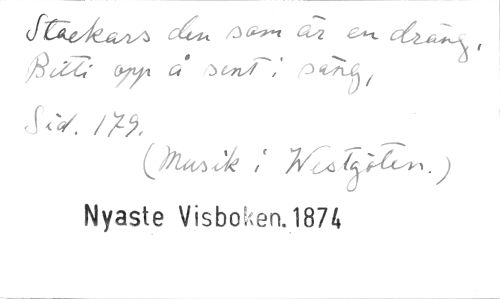 Stackars den som är en dräng,
Bitti opp å sent i säng,
Sid. 179.
(Musik i Westgöten.)
Nyaste Visboken. 1874